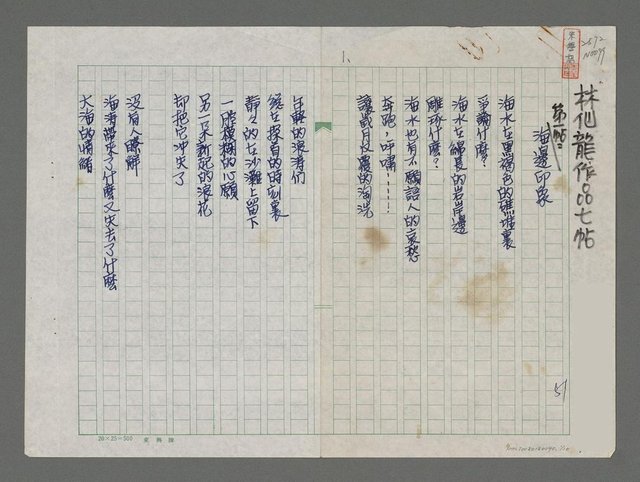 林仙龍作品七帖
2572
N0099
第一帖：
海邊印象
海水在黑褐色的礁堆裏
爭論什麼？
海水在鱗晃的岩岸邊
雕琢什麼？
海水也有不願語人的哀愁
奔跑，呼嘯……
讓歲月反覆的淘洗
年輕的浪濤們
總在探首的時刻裏
靜々的在沙灘上留下
一些模糊的心願
另一朵新起的浪花
却把它沖失了
沒有人瞭解
海濤帶來了什麼又失去了什麼
大海的情緒
1、
20×25=500